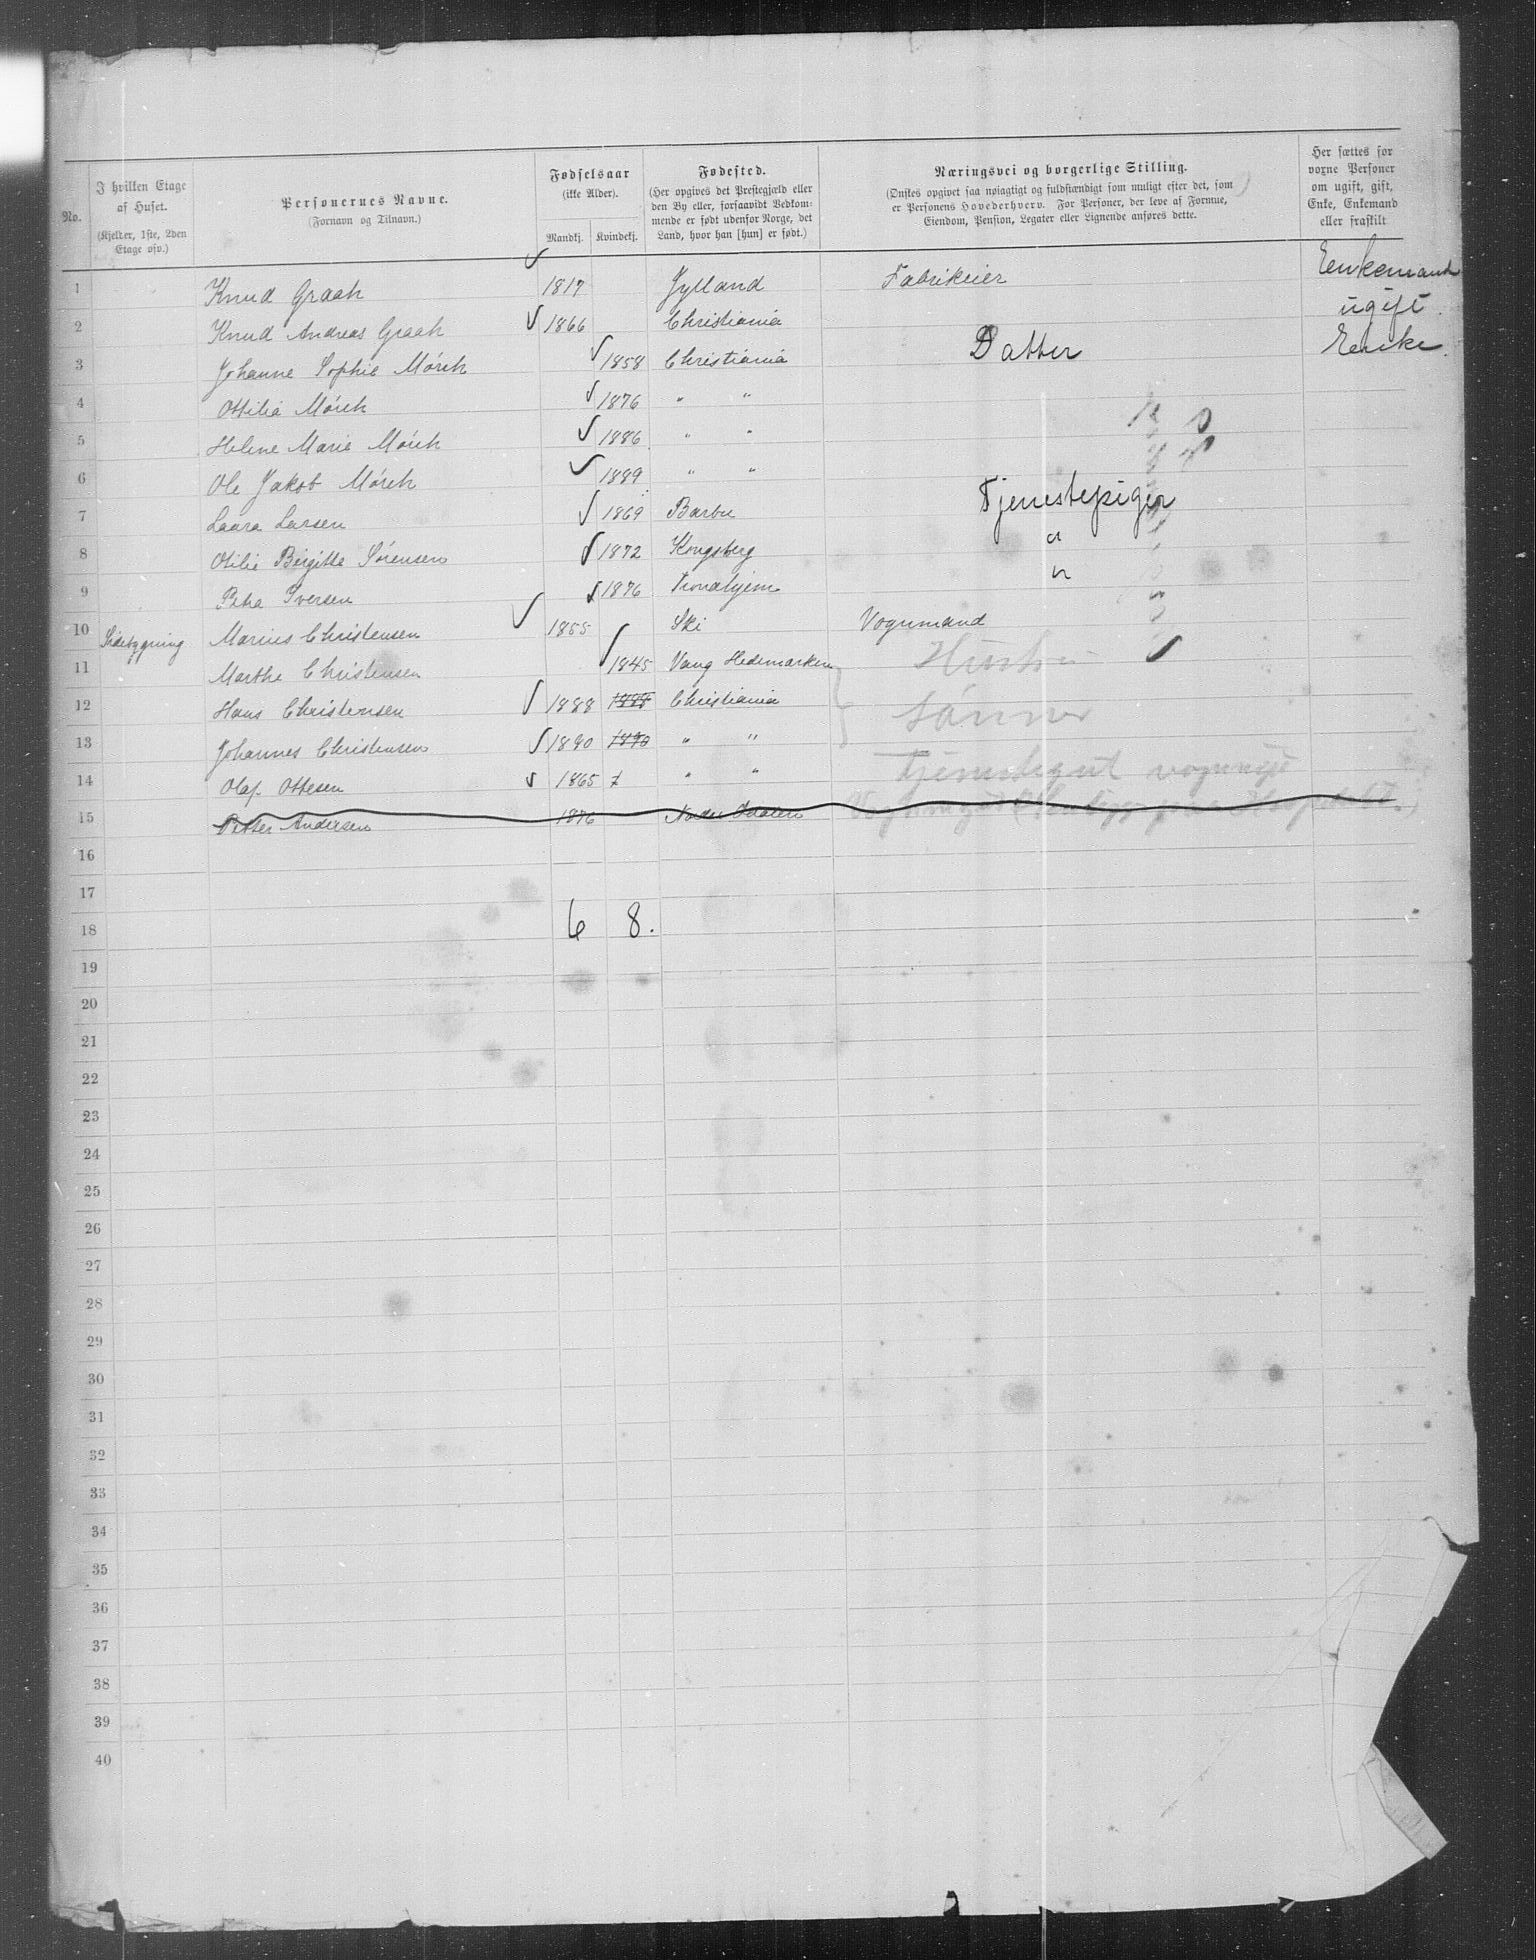 No. | I hvilken Etage af Huset. (Kjelder, 1ste, 2den Etage osv.) | Personernes Navne. (Fornavn og Tilnavn.) | Fødselsaar (ikke Alder). Mandkj. Kvindekj. | Fødested. (Her opgives det Prestegjæld eller den By eller, forsaavidt Vedkommende er født udenfor Norge, det Land, hvor han [hun] er født.) | Næringsvei og borgerlige Stilling. (Ønskes opgivet saa nøiagtigt og fuldstændigt som muligt efter det, som er Personens Hovederhverv. For Personer, der leve af Formue, Eiendom, Pension, Legater eller Lignende anføres dette. | Her sættes for voxne Personer om ugift, gift, Enke, Enkemand eller fraskilt
1 Knud Graah 1817 Jylland Fabrikeier Eenkemand
2 Knud Andreas Graah 1866 Christiania ugift.
3 Johanne Sophie Mørch 1858 Christiania Datter Eenke.
4 Ottilia Mørch 1876 " "
5 Helene Marie Mørch 1886 " "
6 Ole Jakob Mørch 1889 " "
7 Laura Larsen 1869 Barbu Tjenestepiger
8 Otilie Birgitte Sørensen 1872 Kongsberg "
9 Petra Iversen 1876 Trondhjem "
10 Sidebygning Marius Christensen 1855 Ski Vognmand
11 Marthe Christensen 1845 Vang Hedemarken Hustru
12 Hans Christensen 1888 1888 Christiania Sønner
13 Johannes Christensen 1890 1890 " "
14 Olaf Ottesen 1865 " " Tjenstegut
15 Petter Andersen 1876 Nordre Odalen
16
17
18 6 8.
19
20
21
22
23
24
25
26
27
28
29
30
31
32
33
34
35
36
37
38
39
40